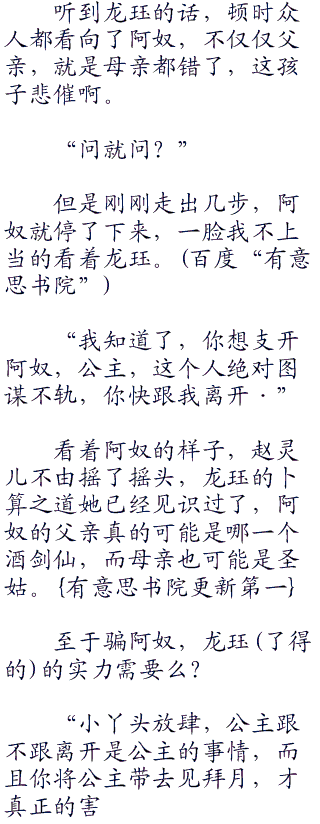 听到龙珏的话，顿时众
人都看向了阿奴，不仅仅父
亲，就是母亲都错了，这孩
子悲催啊。
“问就问？”
但是刚刚走出几步，阿
奴就停了下来，一脸我不上
当的看着龙珏。(百度“有意
思书院”)
“我知道了，你想支开
阿奴，公主，这个人绝对图
谋不轨，你快跟我离开·”
看着阿奴的样子，赵灵
儿不由摇了摇头，龙珏的卜
算之道她已经见识过了，阿
奴的父亲真的可能是哪一个
酒剑仙，而母亲也可能是圣
姑。{有意思书院更新第一}
至于骗阿奴，龙珏(了得
的)的实力需要么？
“小丫头放肆，公主跟
不跟离开是公主的事情，而
且你将公主带去见拜月，才
真正的害